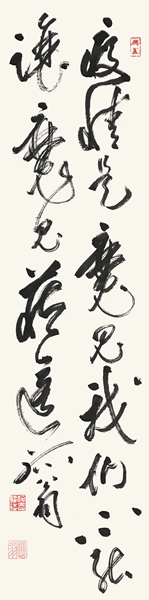 疫情是魔鬼我们不能
让魔鬼藏匿